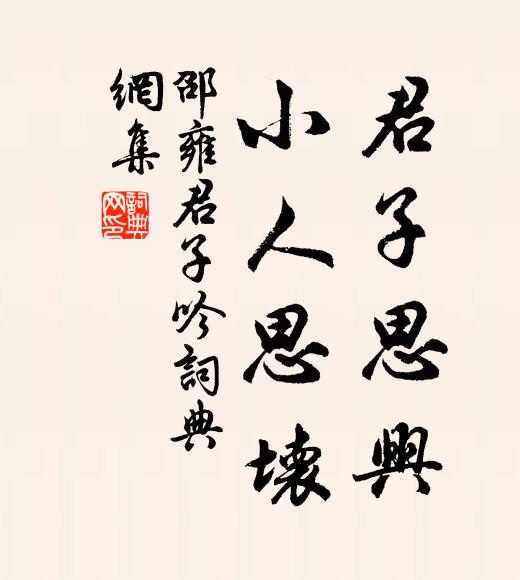 君子思興
小人思壞
邵雍君子吟詞典
網集
詞典
网印